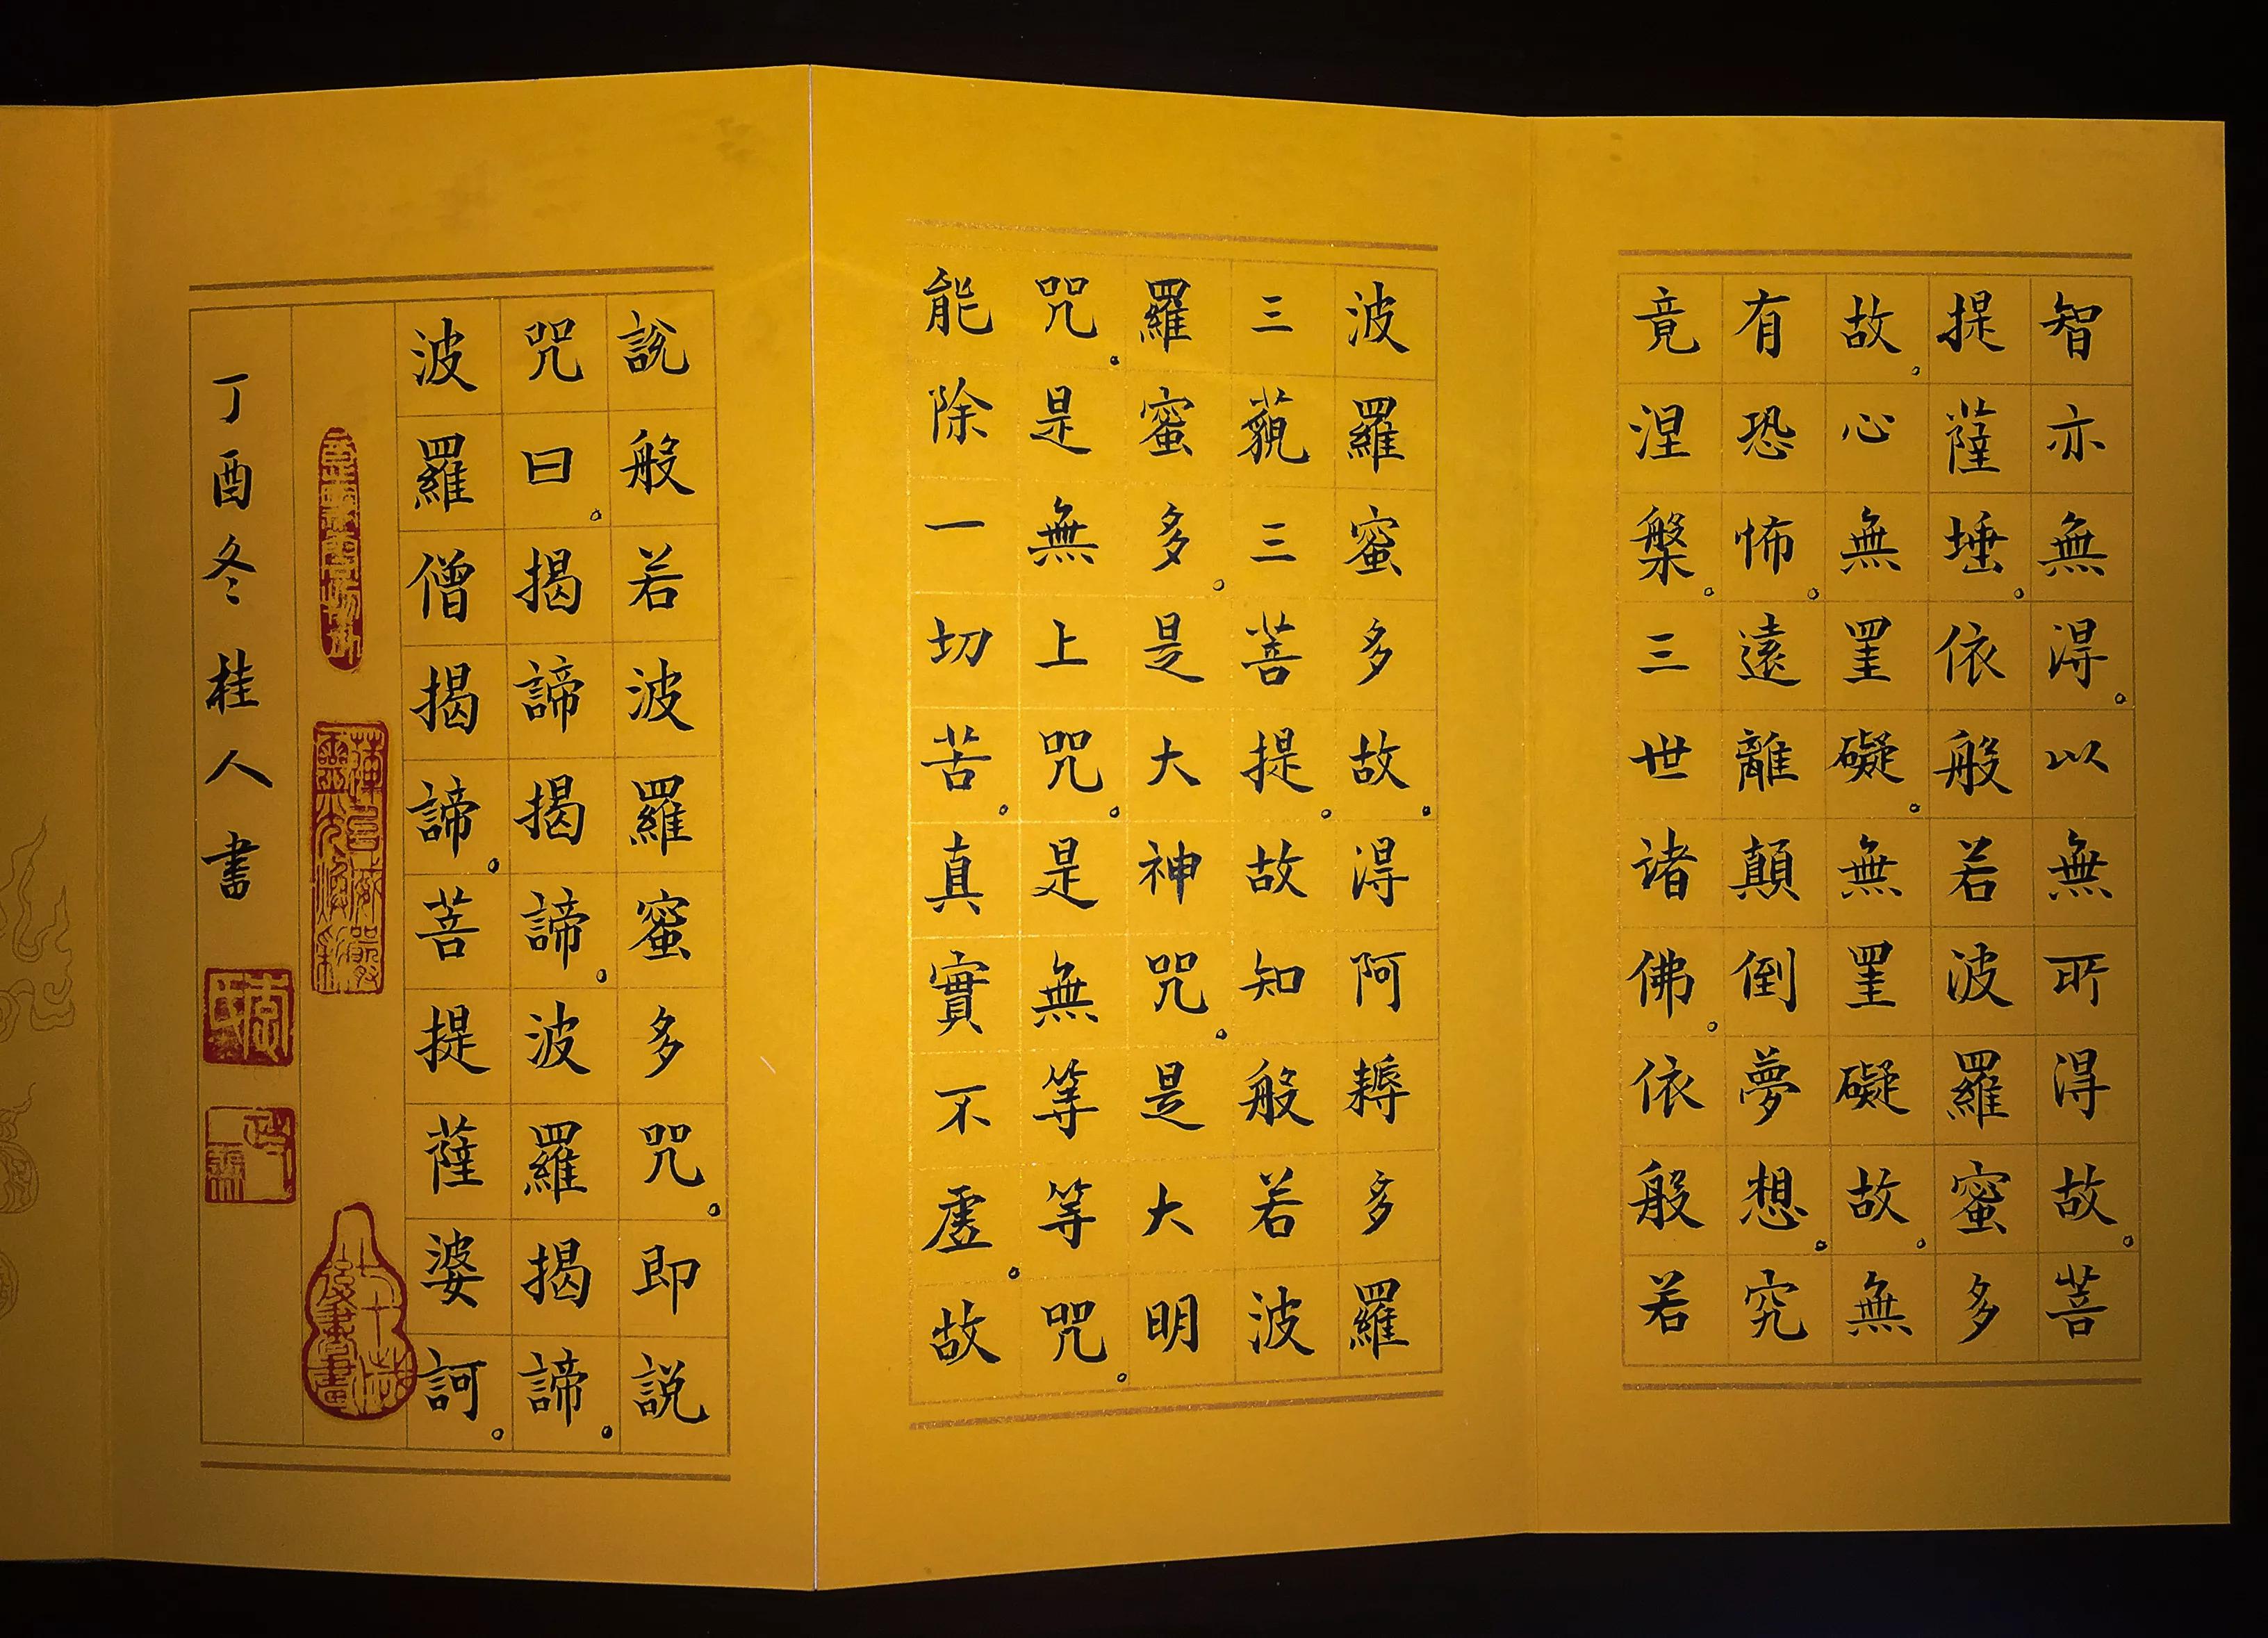 智亦無得。以無所得故。菩
提薩埵。依般若波羅蜜多
故。心無罣礙。無罣礙故。無
有恐怖。遠離顛倒夢想。究
竟涅槃。三世諸佛。依般若
波羅蜜多故。得阿耨多羅
三藐三菩提。故知般若波
羅蜜多。是大神咒。是大明
咒。是無上咒。是無等等咒。
能除一切苦。真實不虛。故
說般若波羅蜜多咒。即說
咒曰。揭諦揭諦。波羅揭諦。
波羅僧揭諦。菩提薩婆訶。
丁酉冬桂人書